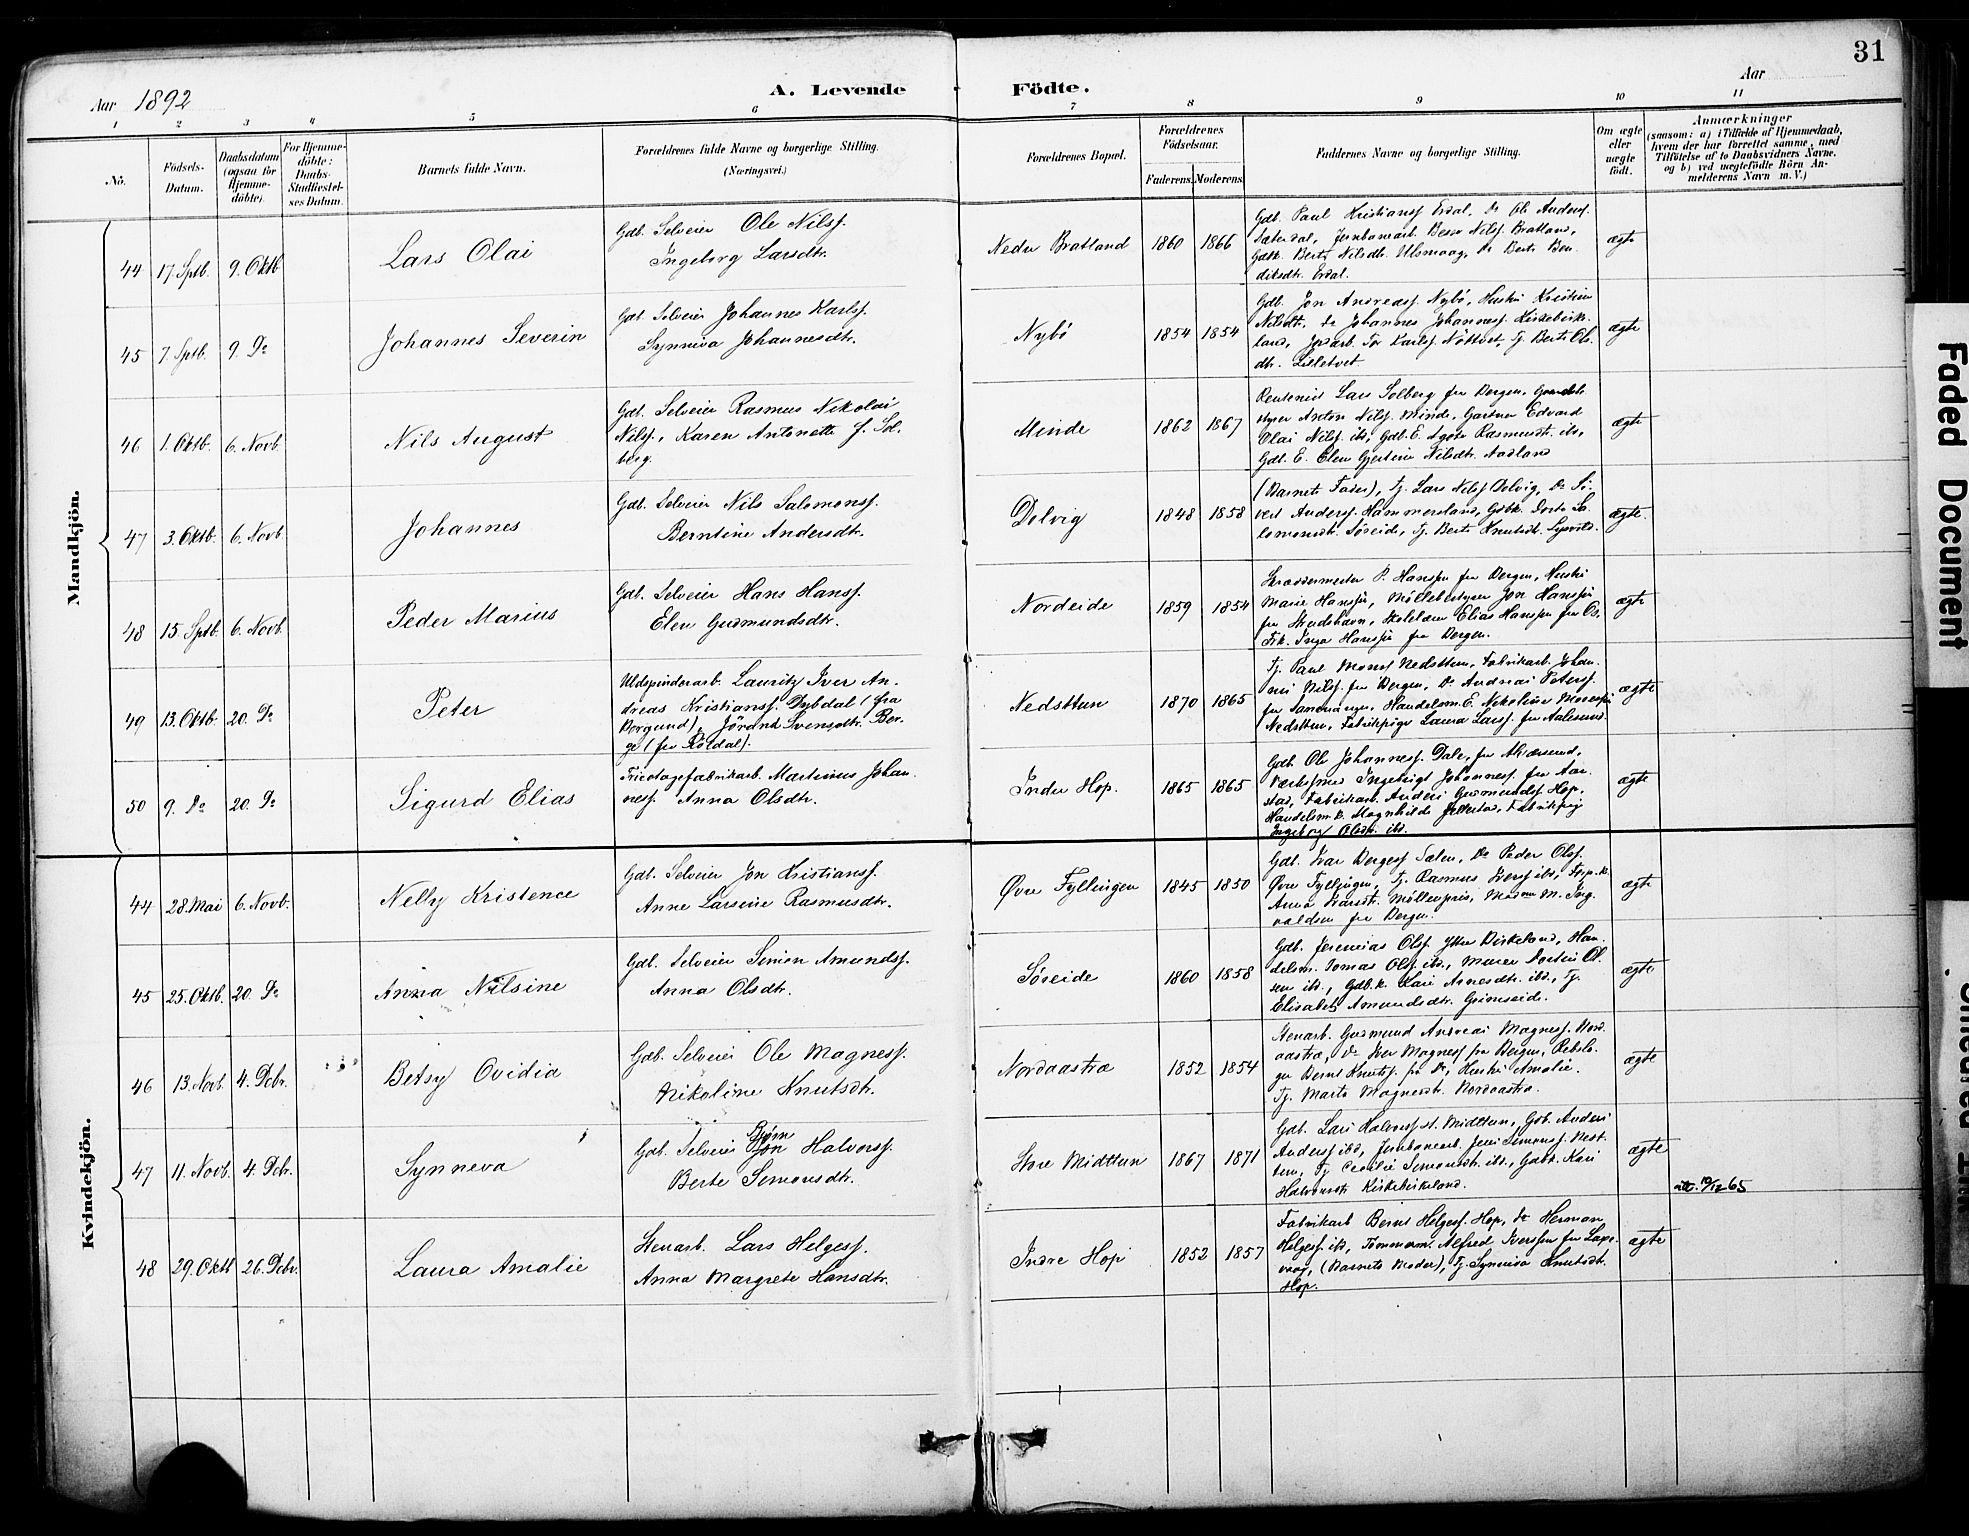 31
Aar 1892
A. Levende
Födte.
Aar
1 2 3 4 5 6 7 8 9 10 11
No.
Födsels-
Datum.
Daabsdatum
(ogsaa for
Hjemme-
döbte).
For Hjemme-
döbte:
Daabs-
Stadfæstel-
ses Datum.
Barnets fulde Navn.
Forældrenes fulde Navne og borgerlige Stilling.
(Næringsvei.)
Forældrenes Bopæl.
Forældrenes
Födselsaar.
Faderens.
Moderens.
Faddernes Navne og borgerlige Stilling.
Om ægte
eller
uægte
födt.
Anmærkninger
(saasom: a) i Tilfælde af Hjemmedaab,
hvem der har forrettet samme, med
Tilföielse af to Daabsvidners Navne,
og b) ved uægtefödte Börn An-
melderens Navn m.V.)
Mandkjön.
44 17. Sptb. 9. Oktb
Lars Olai
Gdb. Selveier Ole Nilsf.
Ingeborg Larsdtr.
Nedre Bratland 1860 1866
Gdb. Paul Kristiansf Erdal, Do Ole Andersf.
Sæterdal, Jernbanearb. Nilsf. Bratland,
Nilsdtr. Ulsmaag, Do Berte Ben
diksdtr. Erdal.
ægte
45 7. Sptb. 9. Do
Johannes Severin
Gdb. Selveier Johannes Karlsf.
Synneva Johannesdtr.
Nybö 1854 1854
Gdb. Jon Andreasf. Nybö, Hustru Kristine
Nilsdt, Do Johannes Johannesf. Kirkebirke-
land, Jordarb. Tor Karlsf. Nöttvet, Tj. Berte Ols-
dtr. Lilletvet.
ægte
46 1. Oktb. 6. Novb.
Nils August
Gdb. Selveier Rasmus Nikolai
Nilsf., Karen Antonette f. Sol-
berg.
Minde 1862 1867
Lars Solberg fra Bergen,
Anton Nilsf. Minde, Gartner Edvard
Olai Nilsf. ibd., Gdb. E. Agote Rasmusdt. ibd.,
Gdb. E. Elen Gjertine Nilsdtr. Aadland
ægte
47 3. Oktb. 6. Novb
Johannes
Gdb. Selveier Nils Salomonsf.
Berntine Andersdtr.
Dolvig 1848 1858
(Barnets Fader), Tj. Lars Nilsf Dolvig, Do Si-
vert Andersf. Hammersland, Gdbk. Dorte Sa-
lomonsdtr. Söreide, Tj. Berte Knutsdtr.
ægte.
48 15. Sptb. 6. Novb.
Peder Marius
Gdb. Selveier Hans Hansf.
Elen Gudmundsdtr.
Nordeide 1859 1854
Skræddermester P. Hansen fra Bergen, Hustru
Marie Hansen, Möllebestyrer Jon Hansen
fra Skudehavn, Skolelærer Elias Hansen fra Os,
Frk. Inga Hansen fra Bergen.
ægte
49 13. Oktb. 20. Do
Peter
Uldspinderarb. Lauritz Iver An-
dreas Kristiansf. Dybdal (fra
Borgund), Jörand Svensdtr. Bor-
ge (fra Röldal).
Nedsttun 1870 1865
Tj. Paul Monsf Nedsttun, Fabrikarb. Johan-
nes Nilsf. fra Bergen, Do Andreas Petersf.
fra Samnanger, Handelsm. E. Nikoline
Nedsttun, Fabrikpige Laura Larsf. fra Aalesund.
ægte
50 9. Do 20. Do
Sigurd Elias
Tricotagefabrikarb. Martinus Johan-
nesf. Anna Olsdtr.
Indre Hop. 1865 1865
Gdb. Ole Johannesf. Dale, fra
Ingebrigt Johannesf. fra Aar-
stad, Fabrikarb. Anders Gudmundsf Hop,
Handelsm. k. Magnhilde Jellestad, Fabrikpig
Ingeborg Olsdtr. ibd.
ægte
Kvindekjön.
44 28. Mai 6. Novb.
Nelly Kristence
Gdb. Selveier Jon Kristiansf.
Anne Larsine Rasmusdtr.
Øvre Fyllingen 1845 1850
Gdb. Ivar Börgesf Sælen, Do Peder Olsf.
Øvre Fyllingen, Tj. Rasmus Iversf ibd,
Anna Möllenpris, Madam M. Ing-
valdsen fra Bergen.
ægte
45 25. Oktb. 20. Do
Anna Nilsine
Gdb. Selveier Simon Amundsf.
Anna Olsdtr.
Söreide 1860 1858
Gdb. Jeremias Olsf. Ytre Birkeland, Han-
delsm. Tomas Olsf. ibd., Ol-
sen ibd., Gdb. k. Kari Arnesdtr. ibd., Tj.
Elisabet Amundsdtr. Grimseid.
ægte
46 13. Novb. 4. Debr.
Betsy Ovidia
Gdb. Selveier Ole Magnesf.
Nikoline Knutsdtr.
Nordaastræ 1852 1854
Stenarb. Gudmund Andreas Magnesf. Nord-
aastræ, Do Iver Magnesf fra Bergen, Rebsla-
ger Bernt Knutsf. fra Do, Hustru Amalie.
Tj. Marta Magnesdt. Nordaastræ.
ægte
47 11. Novb. 4. Debr.
Synneva
Björn
Gdb. Selveier Jon Halvorsf.
Berte Simonsdtr.
Store Midttun 1867 1871
Gdb. Lars Halvorsf. st. Midttun, Gdb. Anders
Andersf ibd, Jernbanearb. Jens Simonsf. Nest-
tun, Tj. Cecilie Simonsdt. ibd., Gdbk. Kari
Halvorsdtr Kirkebirkeland.
ægte
att. 10/12 65
48 29. Oktb 26. Debr.
Laura Amalie
Stenarb. Lars Helgesf.
Anna Margrete Hansdtr.
Indre Hop 1852 1857
Fabrikarb Bernt Helgesf. Hop, Do Herman
Helgesf. ibd, Tömmerm. Alfred Iversen fra Laxe-
vaag, (Barnets Moder), Tj. Synneva Knutsdtr.
Hop.
ægte
Faded Document